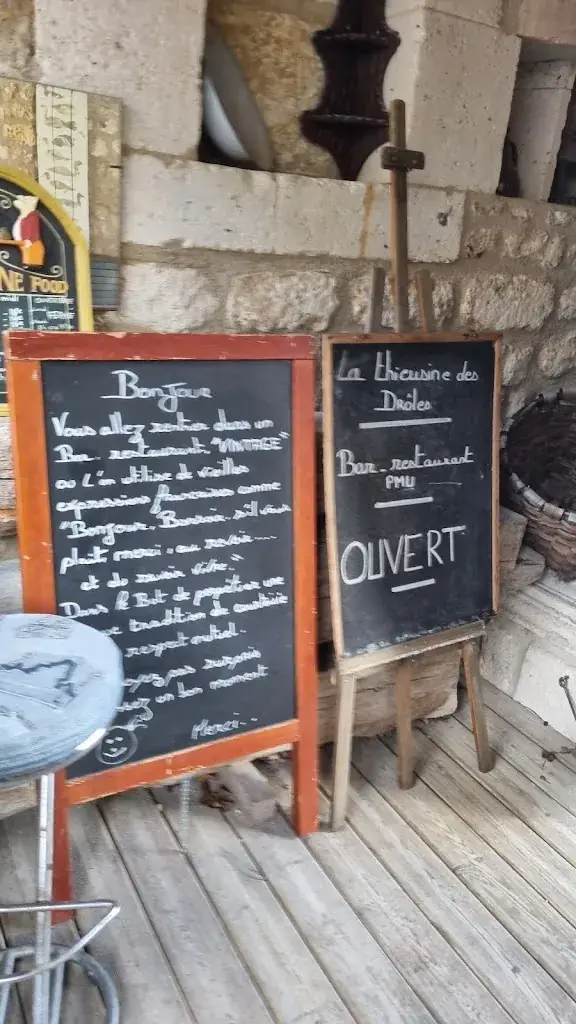 NE FOOD
BonJour
Vous allez rentrer dans un
Bar-restaurant "VINTAGE"
ou l'on utilise de vieilles
expressions françaises comme
"Bonjour, Bonsoir, s'il vous
plait, merci, au revoir....
et de savoir vivre."
Dans le But de perpétuer une
tradition de courtoisie
respect mutuel.
pas surpris
un bon moment
Merci...
La thieusine des
Drôles
Bar-restaurant
PMU
OUVERT